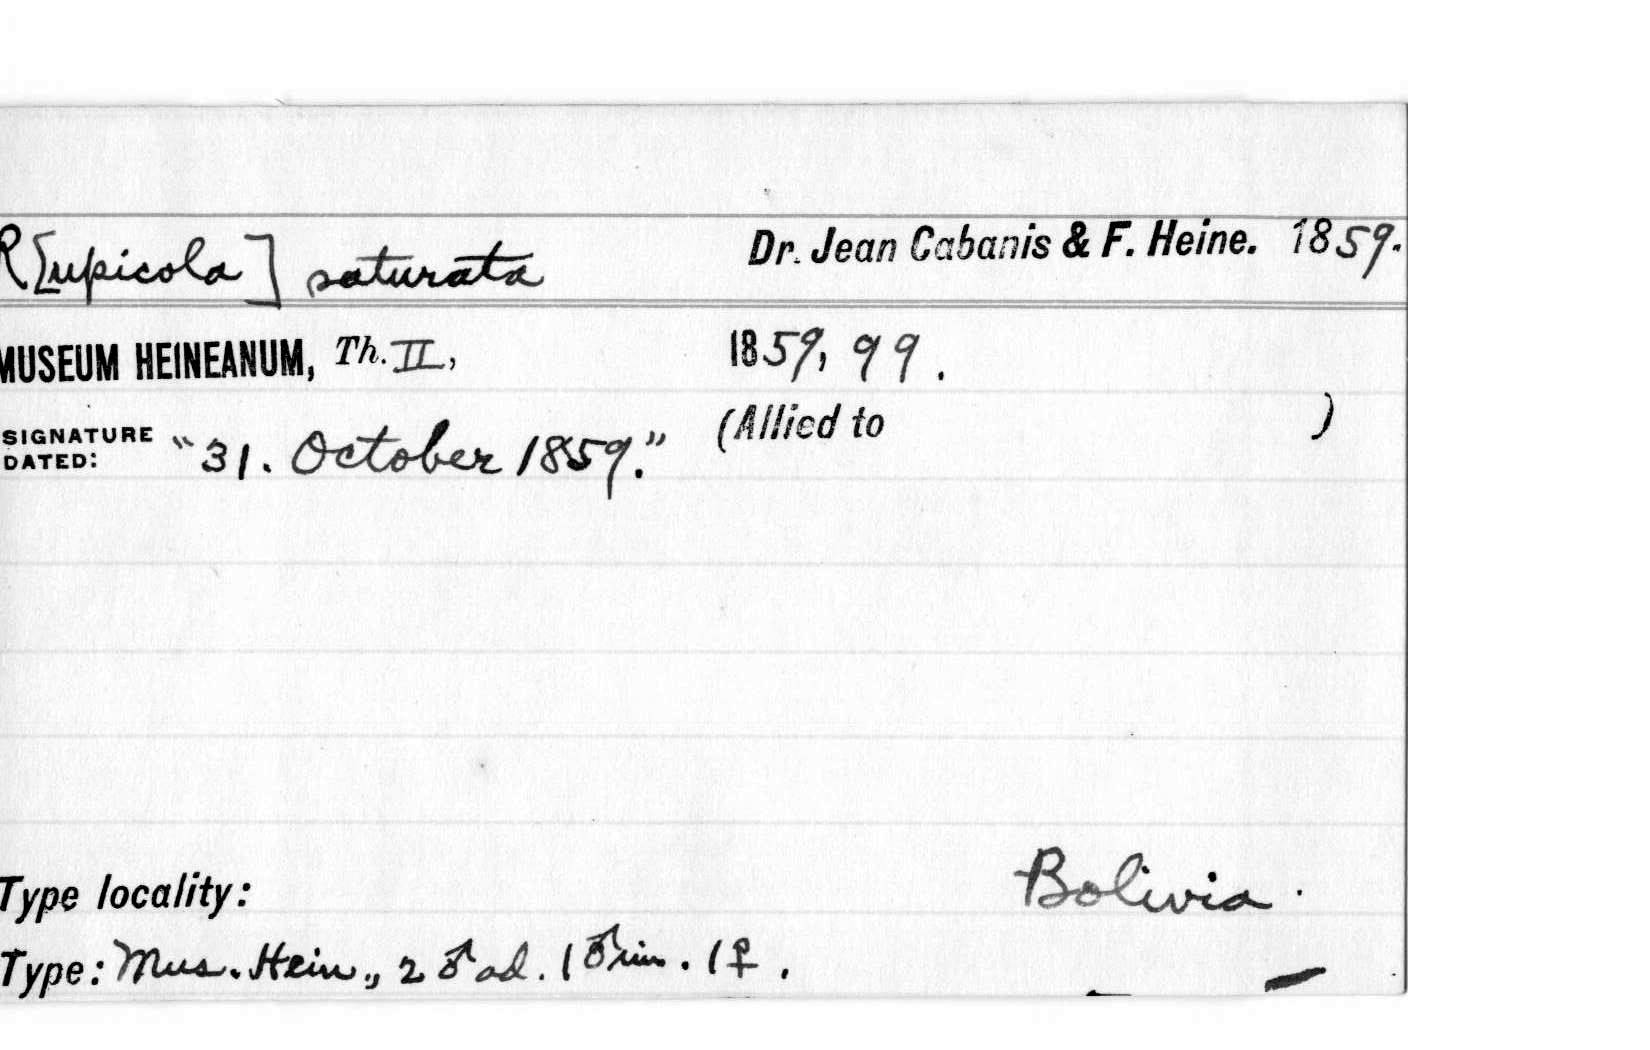 R[upicola] saturata Dr. Jean Cabanis & F. Heine. 1859.
MUSEUM HEINEANUM, Th. II, 1859, 99.
SIGNATURE DATED: "31. October 1859." (Allied to )
Type locality: Bolivia.
Type: Mus. Hein., 2 ♂ ad. 1 ♂ im. 1 ♀.